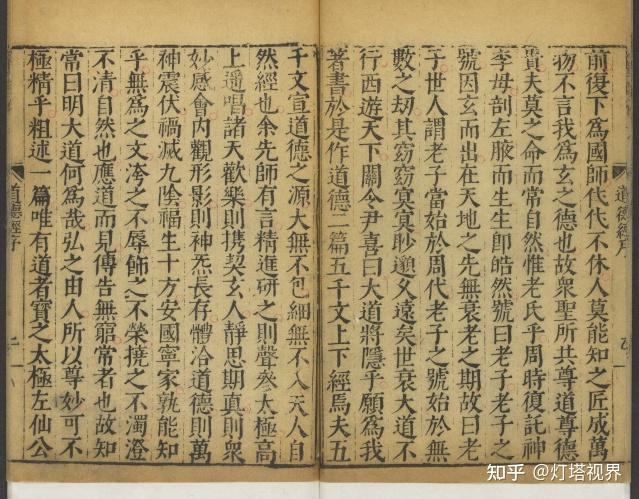 前復下為國師代代不休人莫能知之匠成萬
物不言我為玄之德也故衆聖所共尊道尊德
貴夫莫之命而常自然惟老氏乎周時復託神
李母剖左腋而生生即皓然號曰老子老子之
號因玄而出在天地之先無衰老之期故曰老
子世人謂老子當始於周代老子之號始於無
數之刼其窈窈冥冥眇邈久遠矣世衰大道不
行西遊天下關令尹喜曰大道將隱乎願為我
著書於是作道德二篇五千文上下經焉夫五
千文宣道德之源大無不包細無不入天人自
然經也余先師有言精進研之則聲參太極高
上遥唱諸天歡樂則攜契玄人靜思期真則衆
妙感會内觀形影則神炁長存體洽道德則萬
神震伏禍滅九陰福生十方安國寧家孰能知
乎無為之文洿之不辱飾之不榮撓之不濁澄
不清自然也應道而見傳告無窮常者也故知
常曰明大道何為哉弘之由人所以尊妙可不
極精乎粗述一篇唯有道者寶之太極左仙公
道德經序
二
知乎 @灯塔视界